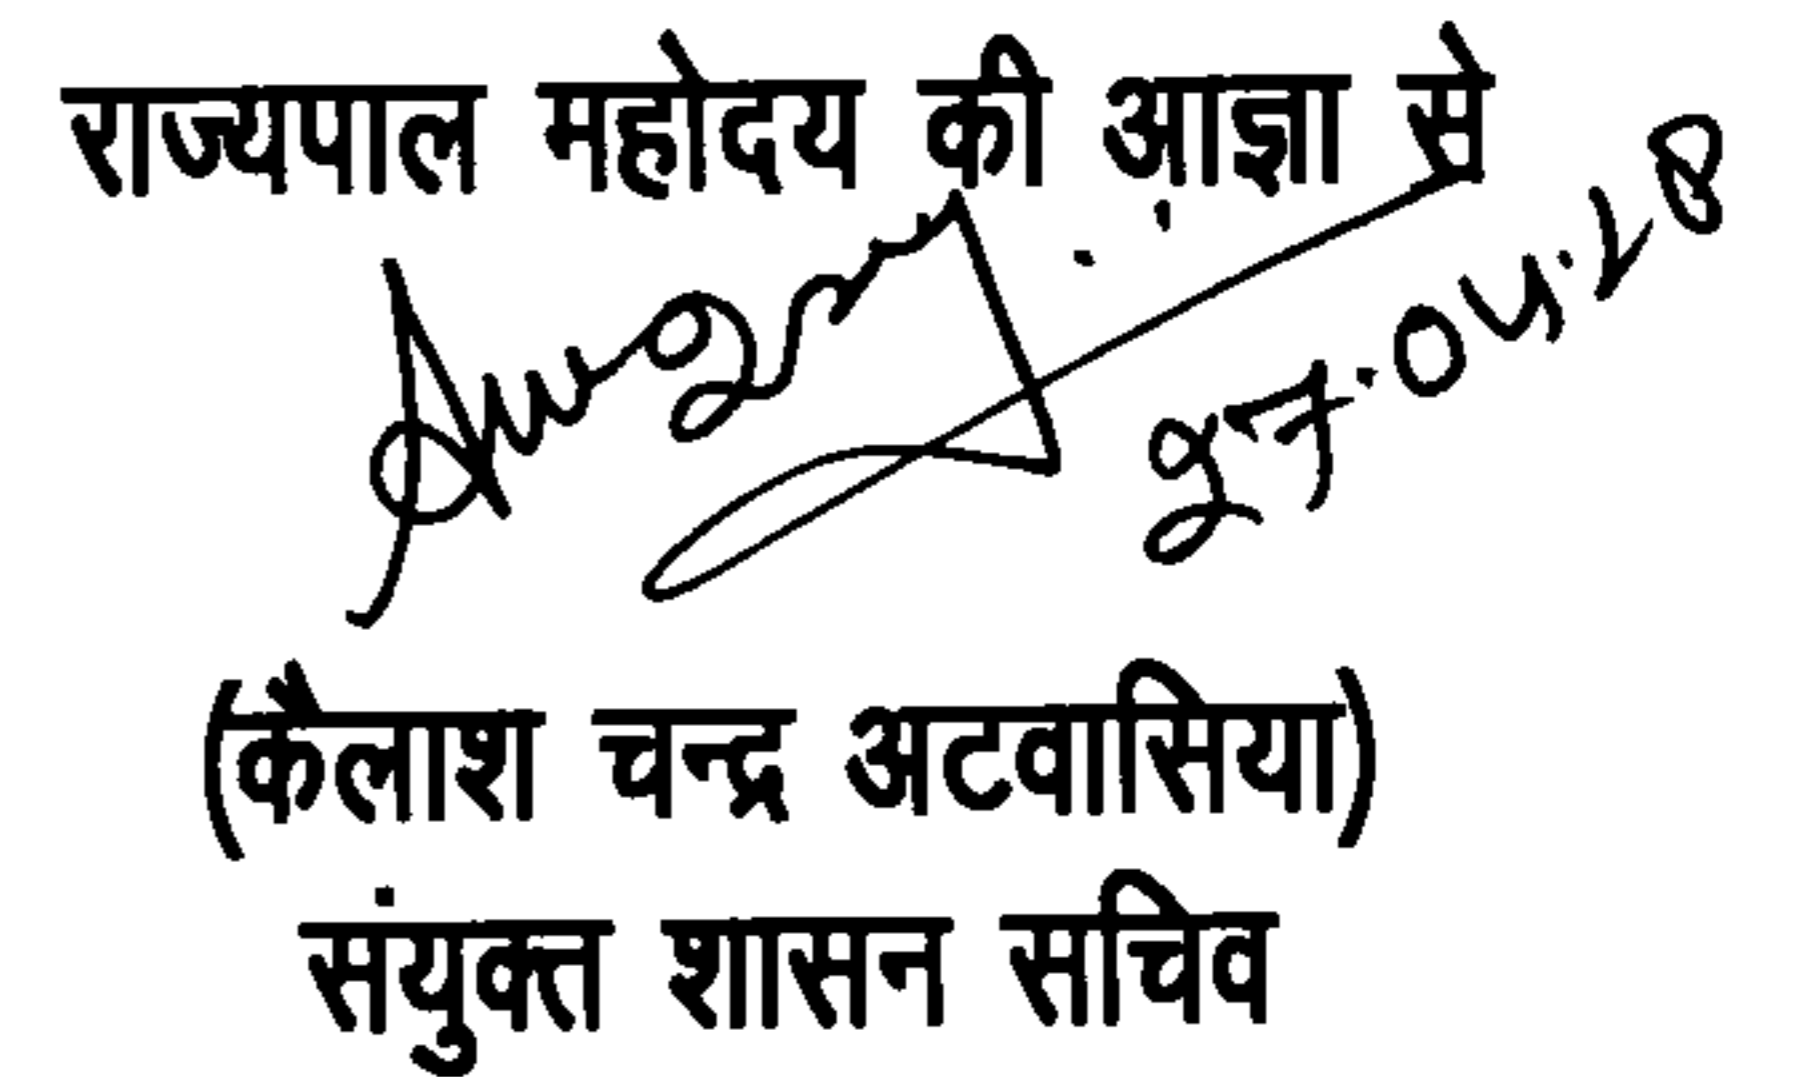 राज्यपाल महोदय की आज्ञा से
(कैलाश चन्द्र अटवासिया)
संयुक्त शासन सचिव